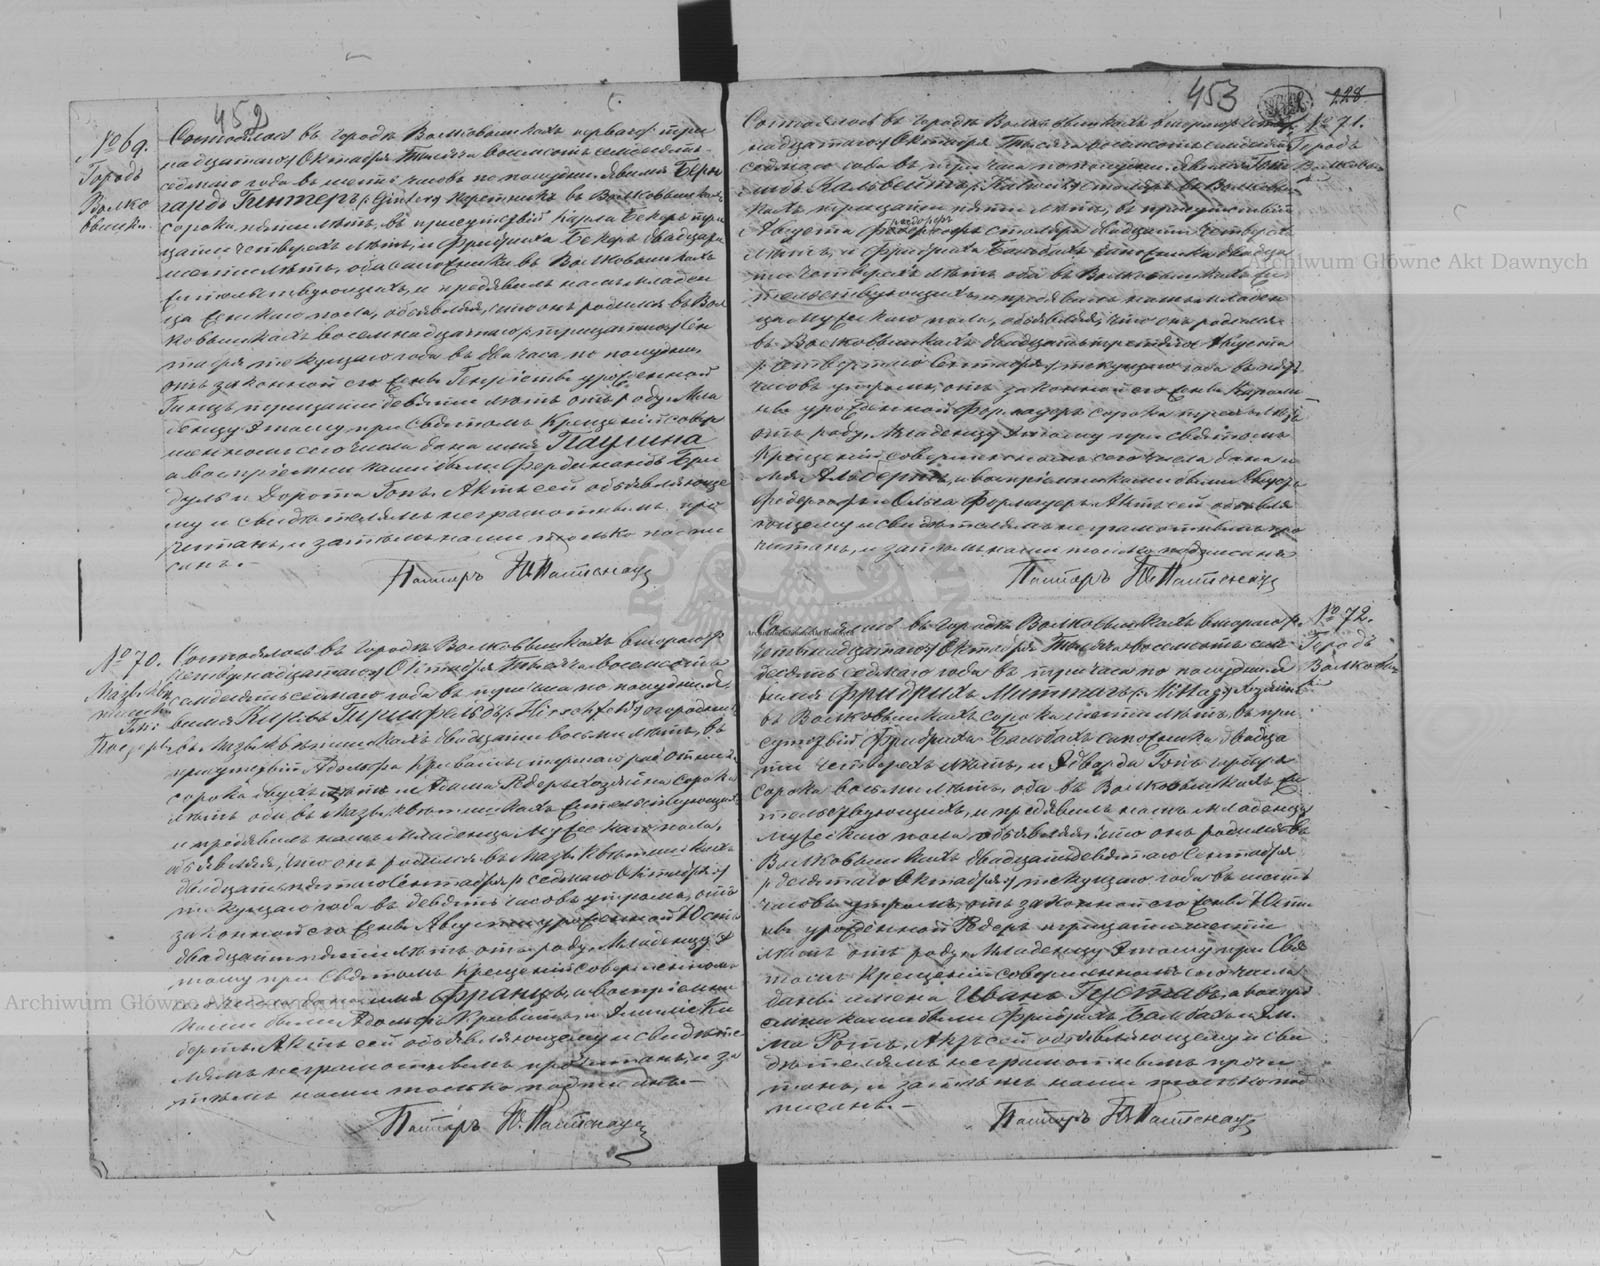 452
№ 69.
Городъ
Волко
вышки.
Состоялось въ городѣ Волковышкахъ перваго /: три
надцатаго :/ Октября тысяча восемьсотъ семьдесятъ
седмаго года въ шесть часовъ по полудни. Явился Берн
гардъ Гинтеръ /: Ginter :/ въ Волковышкахъ
сорока пяти лѣтъ, въ присутствіи Карла Бекеръ три
цати четырехъ лѣтъ, и Фридриха Бекеръ двадцати
шести лѣтъ, оба сапожника въ Волковышкахъ
жительствующихъ, и предъявилъ намъ младен
ца женскаго пола, объявляя, что онъ родился въ Вол
ковышкахъ восемнадцатаго /: тридцатаго :/ Сен
тября текущаго года въ два часа по полудни,
отъ законной его жены Генріеты урожденной
Гинцъ, трицати девяти лѣтъ отъ роду. Мла
денцу этому при Святомъ Крещеніи совер
шенномъ сего числа дано имя Паулина
а воспріемниками были Фердинандъ
и Дорота Гопъ. Актъ сей объявляюще
му и свидѣтелямъ неграмотнымъ про
читанъ, и затѣмъ нами только подпи
санъ.—
Пасторъ
№ 70.
Состоялось въ городѣ Волковышкахъ втораго /:
четырнадцатаго :/ Октября тысяча восемьсотъ
семдесятъ седмаго года въ три часа по полудни. Я
вился Гиршфельдъ /: Hirschfeld :/ огородникъ
въ двадцати восьми лѣтъ, въ
присутствіи Адольфа
сорока двухъ лѣтъ и Адама Редеръ хозяина сорока
лѣтъ оба въ жительствующихъ
и предъявилъ намъ младенца мужескаго пола,
объявляя, что онъ родился въ
двадцать пятаго Сентября /: седмаго Октября :/
текущаго года въ девять часовъ утромъ, отъ
законной его жены Августы урожденной Юсть
двадцати пяти лѣтъ отъ роду. Младенцу э
тому при Святомъ Крещеніи совершенномъ
сего числа дано имя Францъ, а воспріемни
ками были Адольфъ и
Актъ сей объявляющему и свидѣте
лямъ неграмотнымъ прочитанъ, и за
тѣмъ нами только подписанъ.—
Пасторъ
453
228
№ 71.
Городъ
Волковы
Состоялось въ городѣ Волковышкахъ втораго /: четыр
надцатаго :/ Октября тысяча восемьсотъ семьдесятъ
седмаго года въ три часа по полудни. Явился Гот
столяръ въ Волковыш
кахъ трицати пяти лѣтъ, въ присутствіи
Августа столяра двадцати четырехъ
лѣтъ, и Фридриха Бальбахъ сапожника двадца
ти четырехъ лѣтъ оба въ Волковышкахъ жи
тельствующихъ, и предъявилъ намъ младен
ца мужескаго пола, объявляя, что онъ родился
въ Волковышкахъ двадцать третьяго Августа
/: четвертаго Сентября :/ текущаго года въ пять
часовъ утромъ, отъ законной его жены Кароли
ны урожденной Формадоръ сорока трехъ лѣтъ
отъ роду. Младенцу этому при святомъ
Крещеніи совершенномъ сего числа дано и
мя Альбертъ, а воспріемниками были Августъ
и Ольга Формадоръ. Актъ сей объявля
ющему и свидѣтелямъ неграмотнымъ про
читанъ, и затѣмъ нами только подписанъ
Пасторъ
№ 72.
Городъ
Волковы
Состоялось въ городѣ Волковышкахъ втораго /:
четырнадцатаго :/ Октября тысяча восемьсотъ сем
десятъ седмаго года въ три часа по полудни. Я
вился Фридрихъ Миттагъ /: Mittag :/
въ Волковышкахъ сорока шести лѣтъ, въ при
сутствіи Фридриха Бальбахъ сапожника двадца
ти четырехъ лѣтъ, и Эдварда Гопъ
сорока восьми лѣтъ, оба въ Волковышкахъ жи
тельствующихъ, и предъявилъ намъ младенца
мужескаго пола объявляя, что онъ родился въ
Волковышкахъ двадцать девятаго Сентября
текущаго года въ шесть
часовъ утромъ, отъ законной его жены Юсти
ны урожденной Редеръ трицати шести
лѣтъ отъ роду. Младенцу этому при Свя
томъ Крещеніи совершенномъ сего числа
даны имена Иванъ Густавъ, а воспрі
емниками были Фридрихъ Бальбахъ и Эм
ма Ротъ. Актъ сей объявляющему и сви
дѣтелямъ неграмотнымъ прочи
танъ, и затѣмъ нами только под
писанъ.—
Пасторъ
Archiwum Główne Akt Dawnych
Archiwum Główne Akt Dawnych